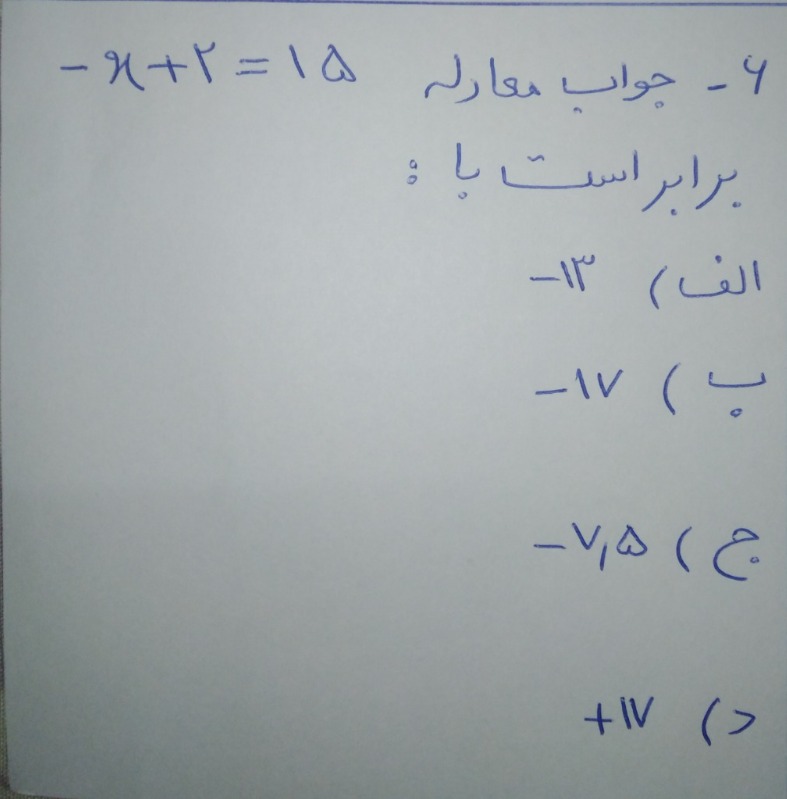 ۶- جواب معادله -x+۲=۱۵
برابر است با :
الف) -۱۳
ب) -۱۷
ج) -۷,۵
د) +۱۷